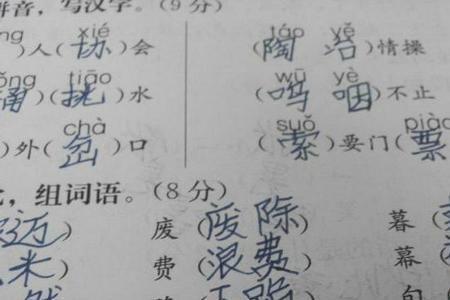 拼音,写汉字。(9分)
ng xié táo yě
)人(协)会 (陶冶)情操
ǒng tiāo wū yè
桶)(挑)水 (呜咽)不止
chà suǒ piào
)外(岔)口 (索)要门(票
,组词语。(8分)
迈) 废(废除) 暮(
米) 费(浪费) 幕(